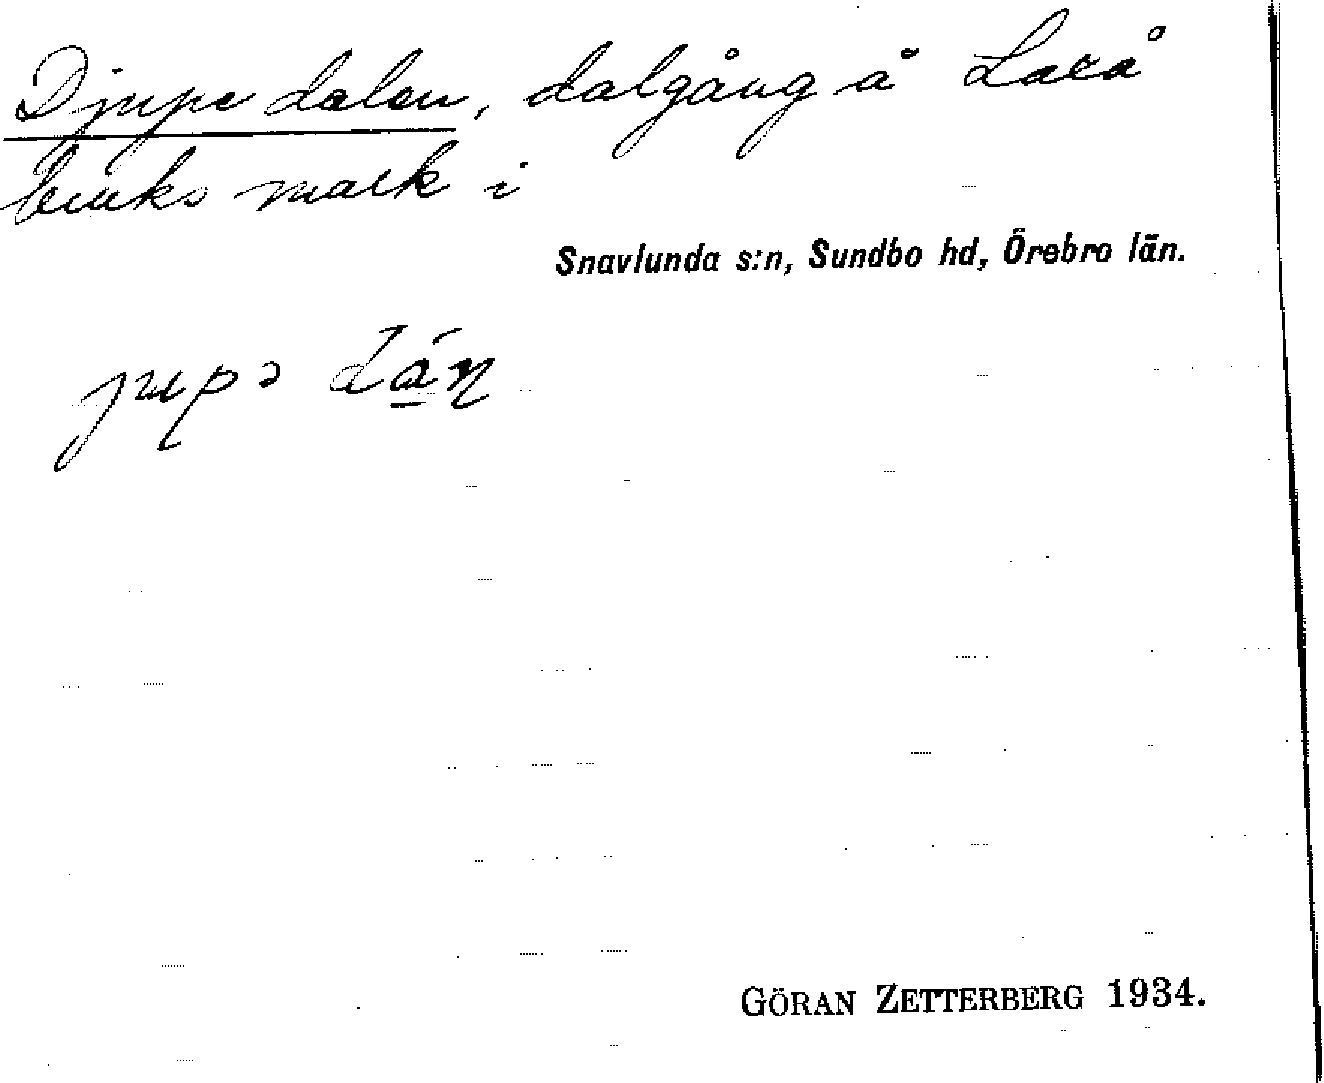 Djupe dalen, dalgång å Laxå
bruks mark i
Snavlunda s:n, Sundbo hd, Örebro län.
jupə
GÖRAN ZETTERBERG 1934.